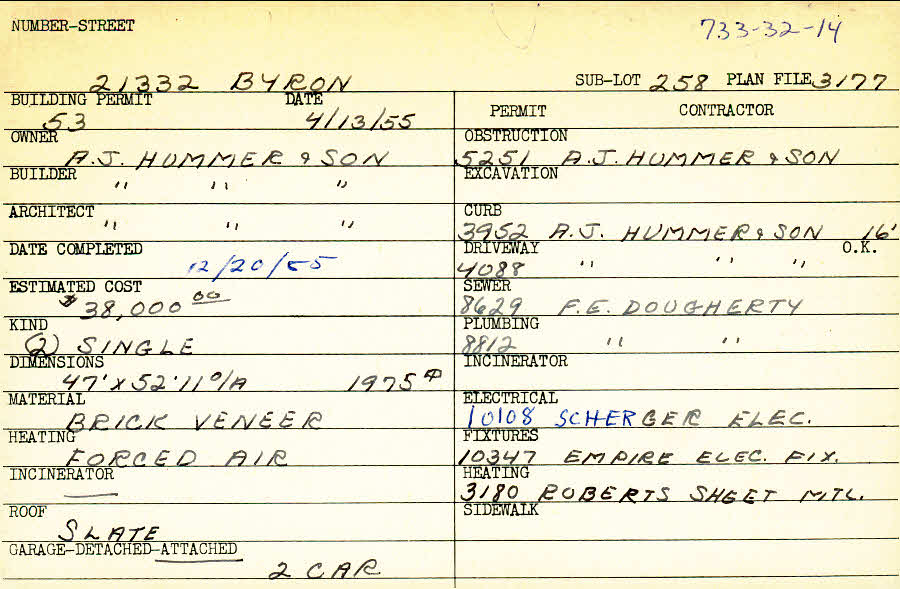 NUMBER-STREET
733-32-14
21332 BYRON
SUB-LOT 258 PLAN FILE 3177
BUILDING PERMIT DATE
53 4/13/55
OWNER
A.J. HUMMER & SON
BUILDER
" " "
ARCHITECT
" " "
DATE COMPLETED
12/20/55
ESTIMATED COST
$38,000 00
KIND
(2) SINGLE
DIMENSIONS
47' X 52'11 O/A 1975
MATERIAL
BRICK VENEER
HEATING
FORCED AIR
INCINERATOR
—
ROOF
SLATE
GARAGE-DETACHED-ATTACHED
2 CAR
PERMIT CONTRACTOR
OBSTRUCTION
5251 A.J. HUMMER & SON
EXCAVATION
CURB
3952 A.J. HUMMER & SON 16'
DRIVEWAY O.K.
4088 " " "
SEWER
8629 F.E. DOUGHERTY
PLUMBING
8812 " "
INCINERATOR
ELECTRICAL
10108 SCHERGER ELEC.
FIXTURES
10347 EMPIRE ELEC. FIX.
HEATING
3180 ROBERTS SHEET MTL.
SIDEWALK